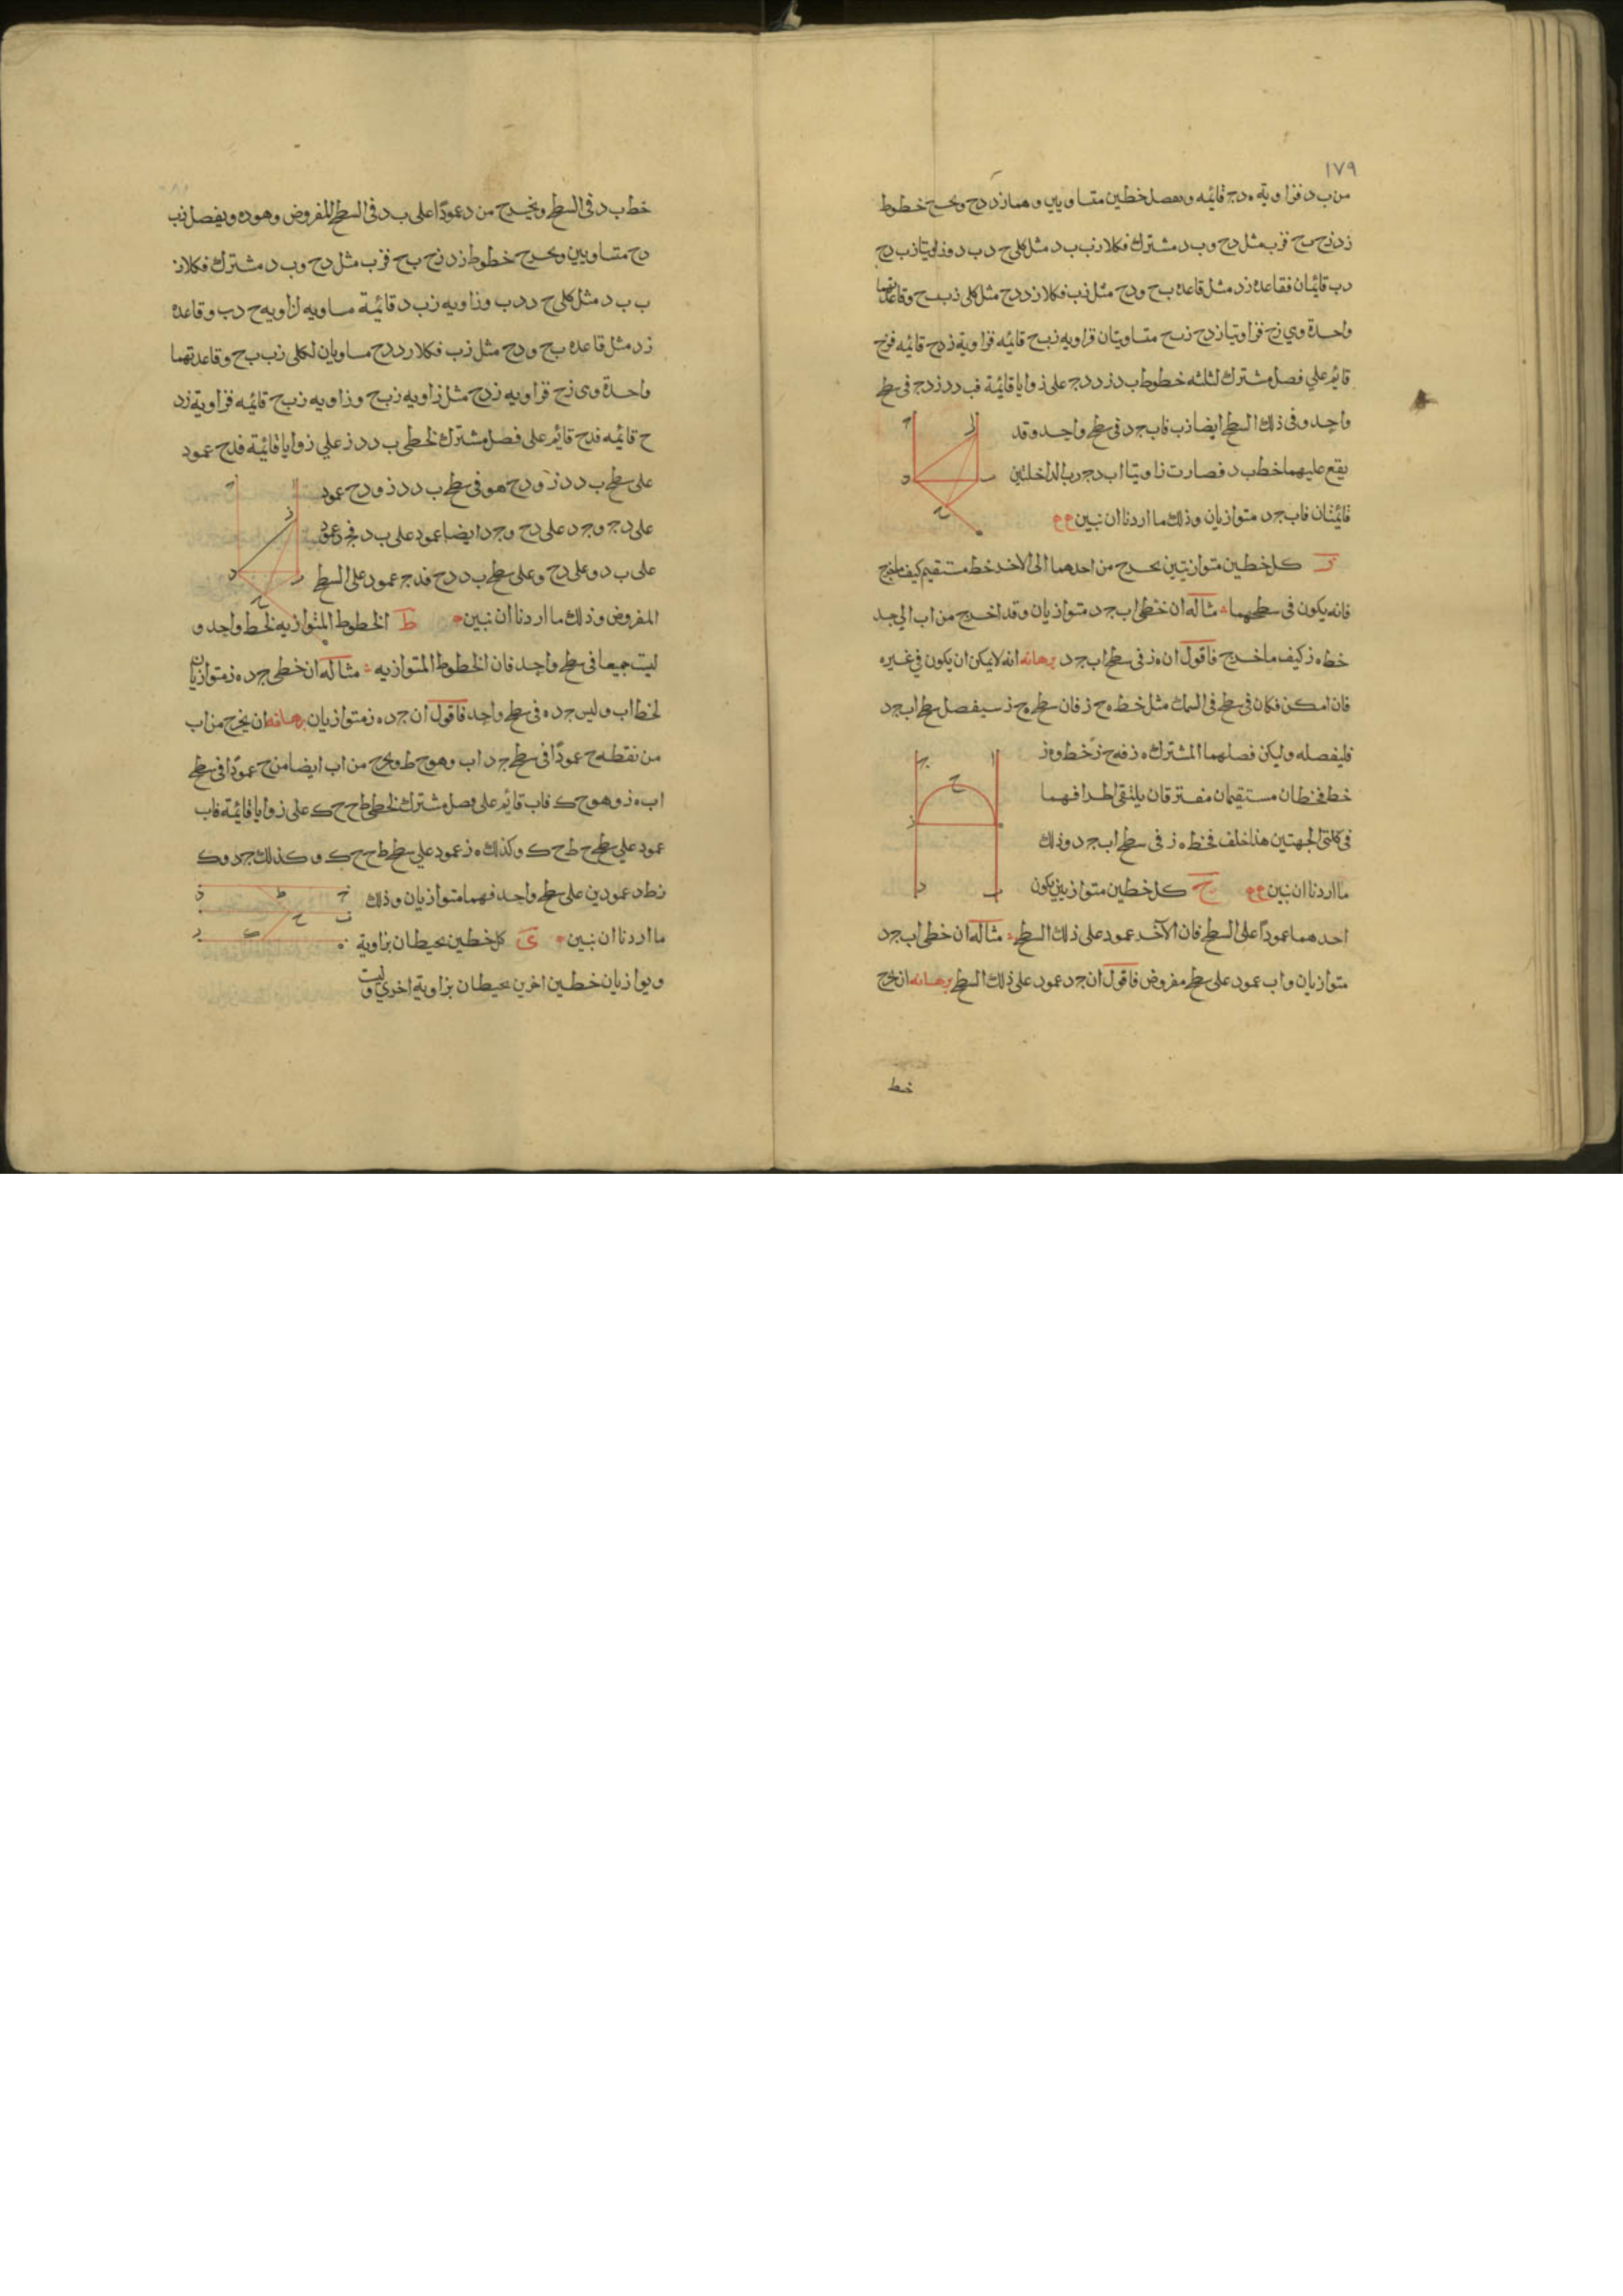 ١٧٩
من ب د فزاوية ه د ج قائمه ونفصل خطين متساويين وهما ز د ح ونخرج خطوط
ز د ز ح ب ح فزب مثل د ح و ب د مشترك فكلا ز ب ب د مثل كلى ح د ب د وزاويتا ز ب د ح
د ب قائمتان فقاعدة ز د مثل قاعده ب ح و د ح مثل ز ب فكلا ز د د ح مثل كلى ز ب ب ح وقاعدتهما
واحدة وهي ز ح فزاويتا ز د ح ز ب ح متساويتان فزاويه ز ب ح قائمه فزاوية ز د ح قائمه
قائم على فصل مشترك لثلثه خطوط ب د ز د د ج على زوايا قائمة ف ب د د ز د ج فى سطح
واحد وفى ذلك السطح ايضا ز ب فاب ج د فى سطح واحد وقد
يقع عليهما خط ب د فصارت زاويتا ا ب د ج د ب الداخلتين
قائمتان فاب ج د متوازيان وذلك ما اردنا ان نبين
ز كل خطين متوازيين يخرج من احدهما الى الاخر خط مستقيم كيف ما خرج
فانه يكون فى سطحهما مثاله ان خطى اب ج د متوازيان وقد اخرج من اب الى جد
خط ه ز كيف ما خرج فاقول ان ه ز فى سطح اب ج د برهانه انه لا يمكن ان يكون فى غيره
فان امكن فكان فى سطح فى السمك مثل خط ه ح ز فان سطح ه ح ز سيفصل سطح اب ج د
فليفصله وليكن فصلهما المشترك ه ز فه ح ز خط وه ز
خط فخطان مستقيمان مفترقان يلتقى اطرافهما
فى كلتى الجهتين هذا خلف فخط ه ز فى سطح اب ج د وذلك
ما اردنا ان نبين ح كل خطين متوازيين يكون
احدهما عمودا على السطح فان الآخر عمود على ذلك السطح مثاله ان خطى اب ج د
متوازيان واب عمود على سطح مفروض فاقول ان ج د عمود على ذلك السطح برهانه ان نخرج
خط
خط ب د فى السطح ونخرج من د عمودا على ب د فى السطح المفروض وهو ده ونفصل زب
د ح متساويين ونخرج خطوط ز د ز ح ب ح فزب مثل د ح و ب د مشترك فكلا ز
ب ب د مثل كلى ح د د ب وزاويه ز ب د قائمة مساويه لزاويه ح د ب وقاعده
ز د مثل قاعده ب ح و د ح مثل ز ب فكلا ز د د ح مساويان لكلى ز ب ب ح وقاعدتهما
واحدة وهى ز ح فزاويه ز د ح مثل زاويه ز ب ح وزاويه ز ب ح قائمه فزاوية ز د
ح قائمه فدح قائم على فصل مشترك لخطى ب د د ز على زوايا قائمة فدح عمود
على سطح ب د د ز و د ج هو فى سطح ب د د ز و د ح عمود
على د ج و ج د على د ح و ج د ايضا عمود على ب د فجد عمود
على ب د وعلى د ح وعلى سطح ب د د ح فدج عمود على السطح
المفروض وذلك ما اردنا ان نبين ط الخطوط المتوازيه لخط واحد و
ليست جميعا فى سطح واحد فان الخطوط المتوازيه مثاله ان خطى ج د ه ز متوازيان
لخط اب وليس ج د ه فى سطح واحد فاقول ان ج د ه ز متوازيان برهانه ان يخرج من اب
من نقطه ح عمودا فى سطح ج د اب وهو ح ط ونخرج من اب ايضا من ح عمودا فى سطح
اب ه ز وهو ح ك فاب قائم على فصل مشترك لخطى ط ح ح ك على زوايا قائمة فاب
عمود على سطح ح ط ح ك وكذلك ه ز عمود على سطح ط ح ح ك وكذلك ج د وك
ز ط د عمودين على سطح واحد فهما متوازيان وذلك
ما اردنا ان نبين ى كل خطين يحيطان بزاوية
ويوازيان خطين اخرين يحيطان بزاوية اخرى وليست